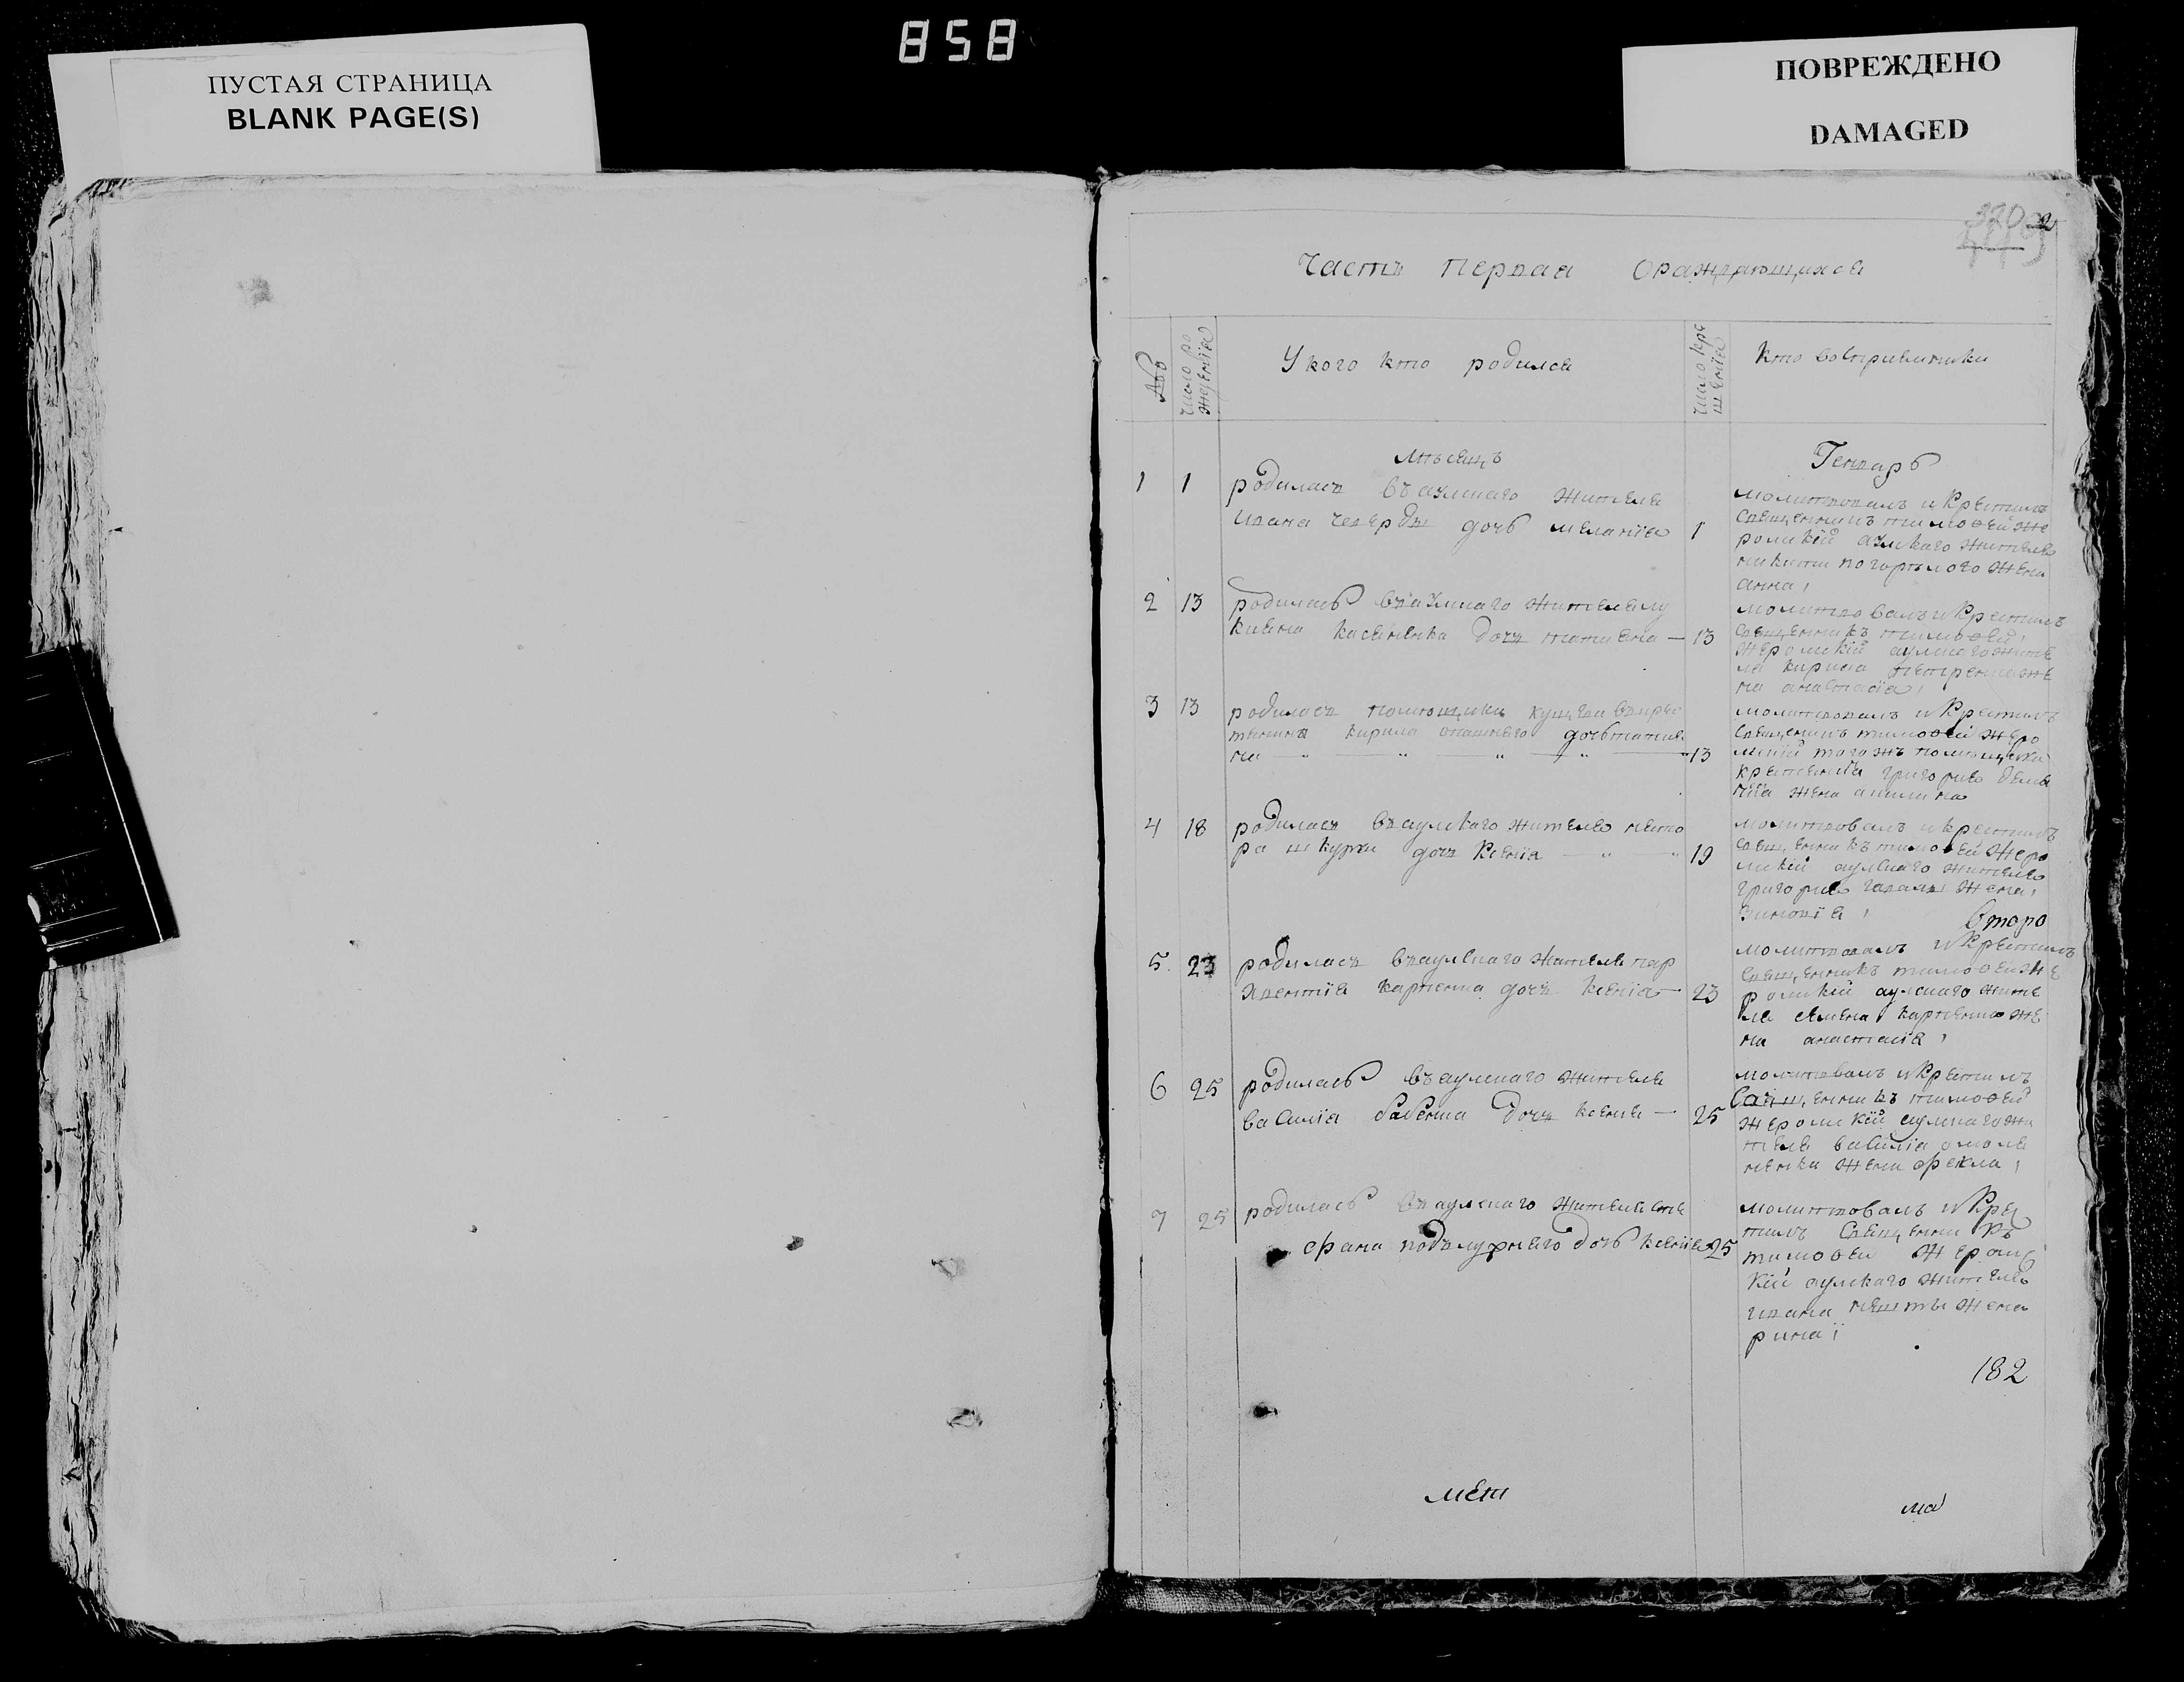 858
ПУСТАЯ СТРАНИЦА
BLANK PAGE(S)
ПОВРЕЖДЕНО
DAMAGED
320 2
Часть первая ораждающихся
число ро
жденїя
У кого кто родился
число кре
щенїя
кто восприемники
Мѣсяцъ
Генварь
1 1
родилась въ аулскаго жителя
ивана дочь меланїя 1
молитвовалъ и крестилъ
священникъ тимоѳей же
ромскїй аулскаго жителя
никити погорѣлого жена
анна
2 13
родилась въ аулскаго жителя лу
кияна дочь татияна — 13
молитвовалъ и крестилъ
священникъ тимоѳей
жеромскїй аулскаго жите
ля кирила петренка же
на анастасїя
3 13
родилась помощика въ кре
кирила дочь татия
на 13
молитвовалъ и крестилъ
священникъ тимоѳей жеро
мскїй того жъ помѣщика
григория
жена акилина
4 18
родилась въ аулскаго жителя пето
ра шкурки дочь ксенїя 19
молитвовалъ и крестилъ
священникъ тимоѳей жеро
мскїй аулскаго жителя
григория жена
зиновїя
Второ
5 23
родилась въ аулскаго жителя пар
карпенка дочь ксенїя — 23
молитвовалъ и крестилъ
священникъ тимоѳей же
ромскїй аулскаго жите
ля семена карпенка же
на анастасїя
6 25
родилась въ аулскаго жителя
василїя бабенка дочь ксения — 25
молитвовалъ и крестилъ
священникъ тимоѳей
жеромскїй аулскаго жи
теля василїя омеля
ненка жена фекла
7 25
родилась въ аулскаго жителя сте
фана дочь ксенїя 25
молитвовалъ и кре
тилъ священникъ
тимоѳей жеромс
кїй аулскаго жителя
ивана жена
рина
182
мет
ма